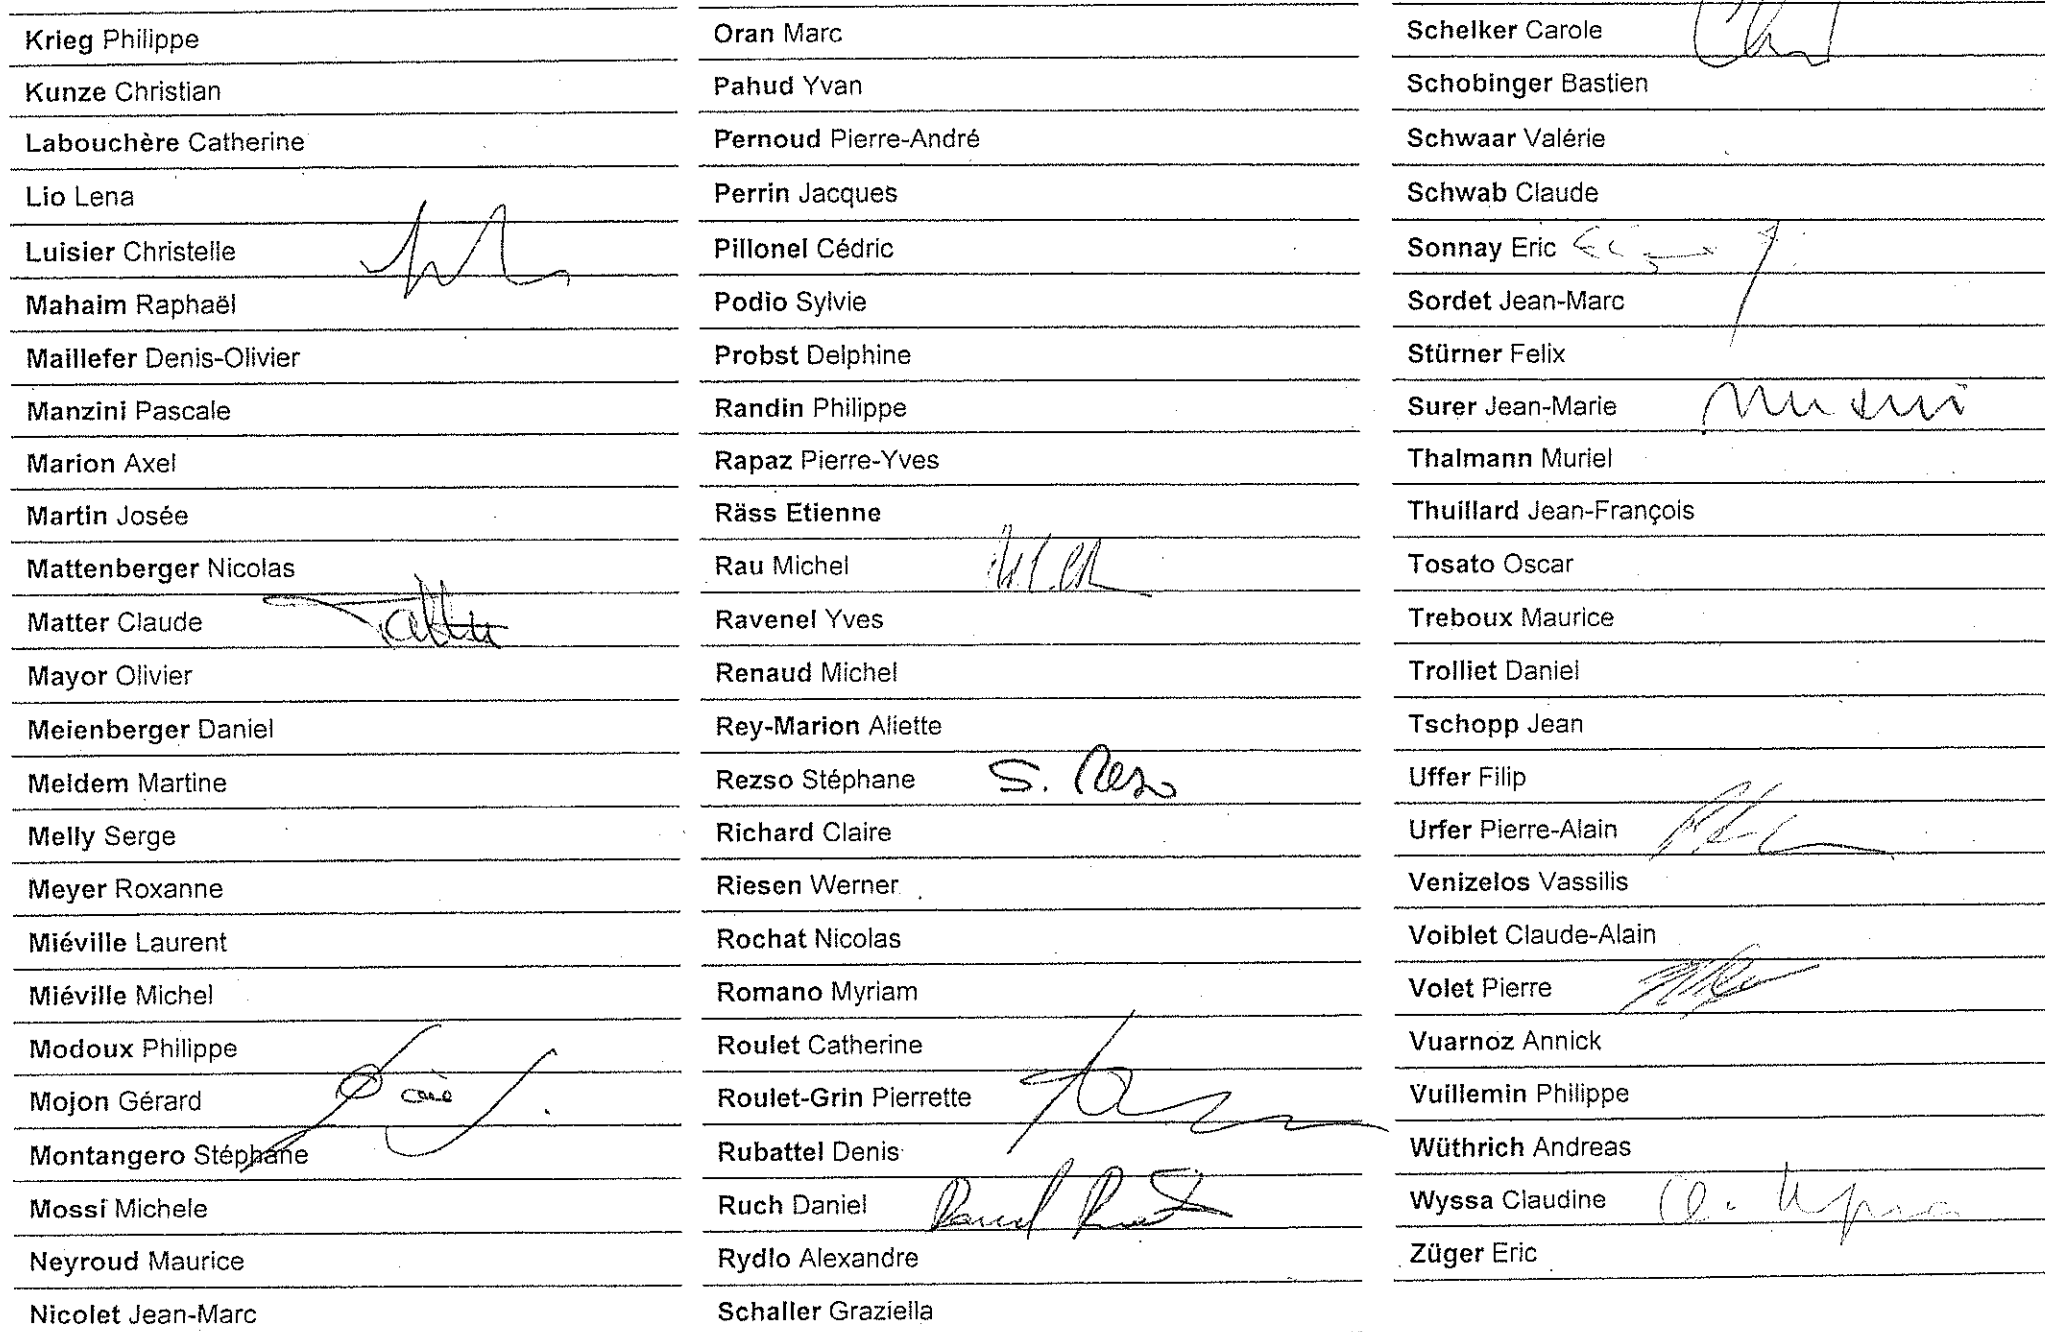 Krieg Philippe
Kunze Christian
Labouchère Catherine
Lio Lena
Luisier Christelle
Mahaim Raphaël
Maillefer Denis-Olivier
Manzini Pascale
Marion Axel
Martin Josée
Mattenberger Nicolas
Matter Claude
Mayor Olivier
Meienberger Daniel
Meldem Martine
Melly Serge
Meyer Roxanne
Miéville Laurent
Miéville Michel
Modoux Philippe
Mojon Gérard
Montangero Stéphane
Mossi Michele
Neyroud Maurice
Nicolet Jean-Marc
Oran Marc
Pahud Yvan
Pernoud Pierre-André
Perrin Jacques
Pillonel Cédric
Podio Sylvie
Probst Delphine
Randin Philippe
Rapaz Pierre-Yves
Räss Etienne
Rau Michel
Ravenel Yves
Renaud Michel
Rey-Marion Aliette
Rezso Stéphane S. Rezso
Richard Claire
Riesen Werner
Rochat Nicolas
Romano Myriam
Roulet Catherine
Roulet-Grin Pierrette
Rubattel Denis
Ruch Daniel Daniel Ruch
Rydlo Alexandre
Schaller Graziella
Schelker Carole
Schobinger Bastien
Schwaar Valérie
Schwab Claude
Sonnay Eric
Sordet Jean-Marc
Stürner Felix
Surer Jean-Marie
Thalmann Muriel
Thuillard Jean-François
Tosato Oscar
Treboux Maurice
Trolliet Daniel
Tschopp Jean
Uffer Filip
Urfer Pierre-Alain
Venizelos Vassilis
Voiblet Claude-Alain
Volet Pierre
Vuarnoz Annick
Vuillemin Philippe
Wüthrich Andreas
Wyssa Claudine
Züger Eric